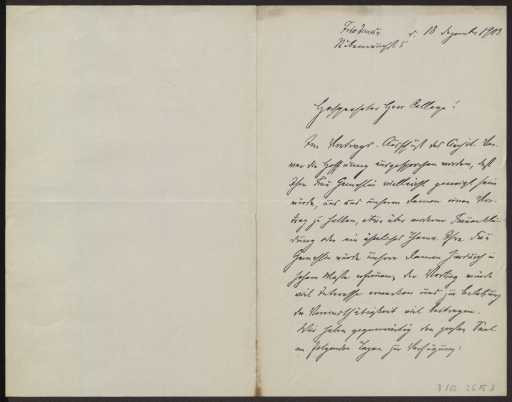 Friedenau
d. 18 Dezember 1903
Hochgeehrter Herr College!
Im Vortrags-Ausschuß des Archit. Ver-
war die Hoffnung ausgesprochen worden, daß
Ihre Frau Gemahlin vielleicht geneigt sein
würde, uns und unseren Damen einen Vor-
trag zu halten, etwa über moderne Frauenklei-
dung oder ein ähnliches Thema. Ihre Frau
Gemahlin würde unsere Damen dadurch in
hohem Maße erfreuen, der Vortrag würde
viel Interesse erwecken und zur Belebung
der Vereinsthätigkeit viel beitragen.
Wir haben gegenwärtig den großen Saal
an folgenden Tagen zur Verfügung: